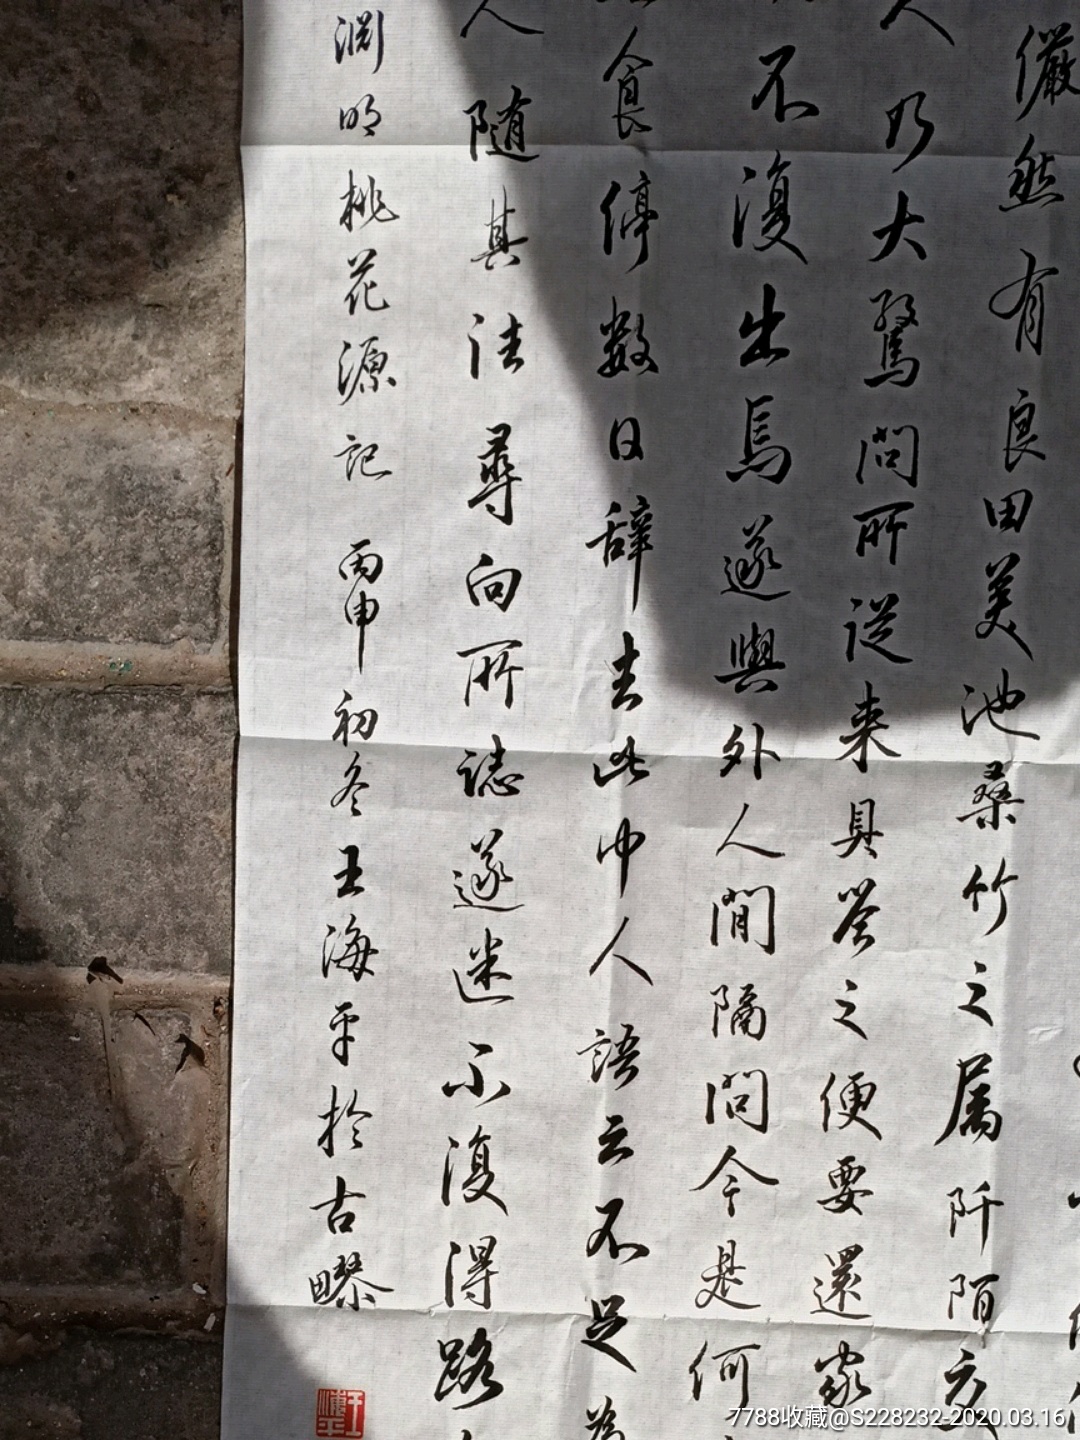 儼然有良田美池桑竹之属阡陌交
人乃大驚問所從来具答之便要還家
不復出焉遂與外人間隔問今是何
食停数日辞去此中人語云不足為
人隨其往尋向所誌遂迷不復得路
渊明桃花源记 丙申初冬王海平於古鄴
王海平
7788收藏@S228232-2020.03.16